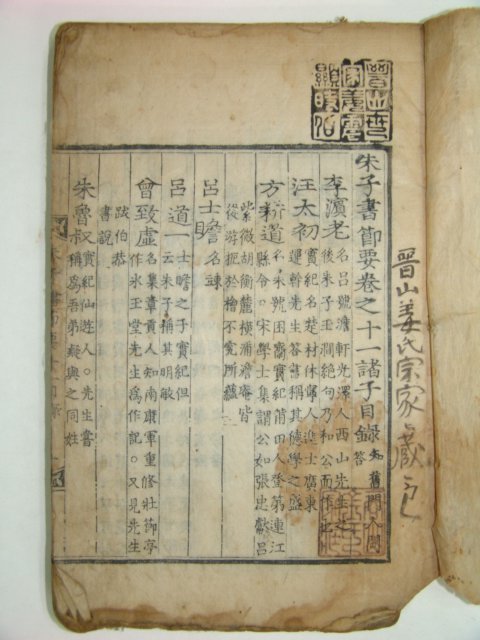 晋山姜氏宗家藏
朱子書節要卷之十一諸子目録 知舊門人問答
李濱老 名呂號澹軒光澤人西山先生之
後朱子玉澗絶句乃和公而作也
汪太初 實紀名楚材休寧人進士廣東
運幹先生答書稱其德學之盛
方耕道 名耒號困齋實紀莆田人登第連江
縣令○宋學士集謂公如張忠獻呂
紫微胡衡麓橫浦澹庵皆
後游扼於檜不究所蘊
呂士瞻 名竦
呂道一 士瞻之子實紀但
云朱子稱其明敏
曾致虛 名集章貢人知南康軍重修壯節亭
作氷玉堂先生爲作記○又見先生
跋伯恭
書說
朱魯叔 實紀仙遊人○先生嘗
稱爲吾弟疑與之同姓